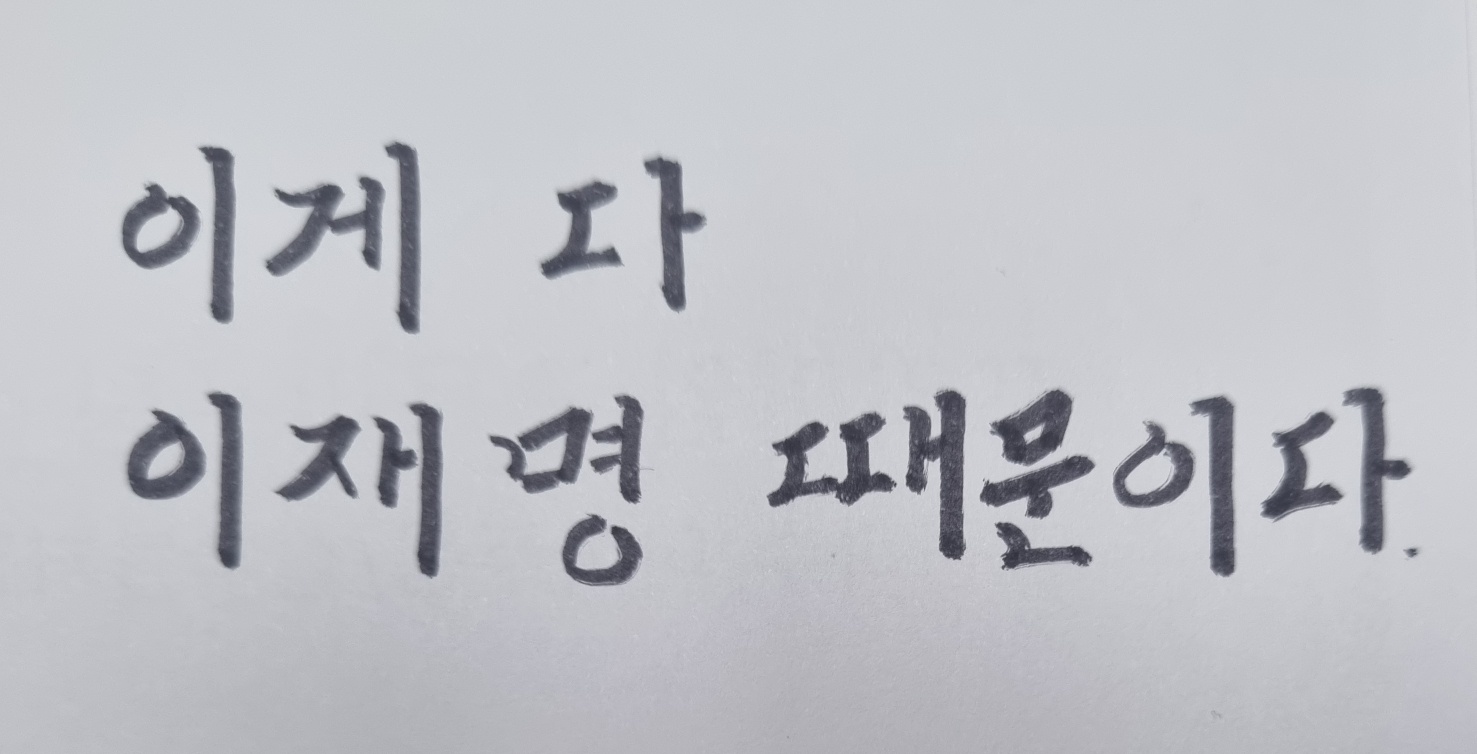 이게 다
이재명 때문이다.